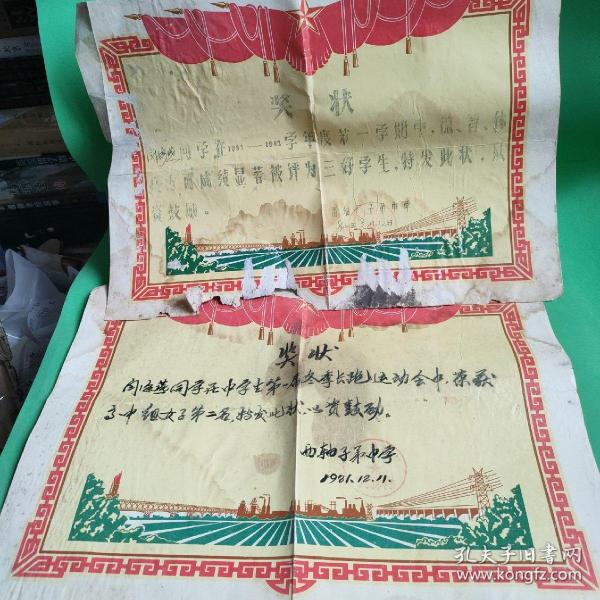 奖状
同学在1981—1982学年度第一学期中,德、智、体
几方面成绩显著被评为三好学生,特发此状,以
资鼓励。
奖状
同学在中学生第一届冬季长跑运动会中,荣获
高中组女子第二名,特发此状,以资鼓励。
西轴子弟中学
1981.12.11.
孔夫子旧书网
www.kongfz.com